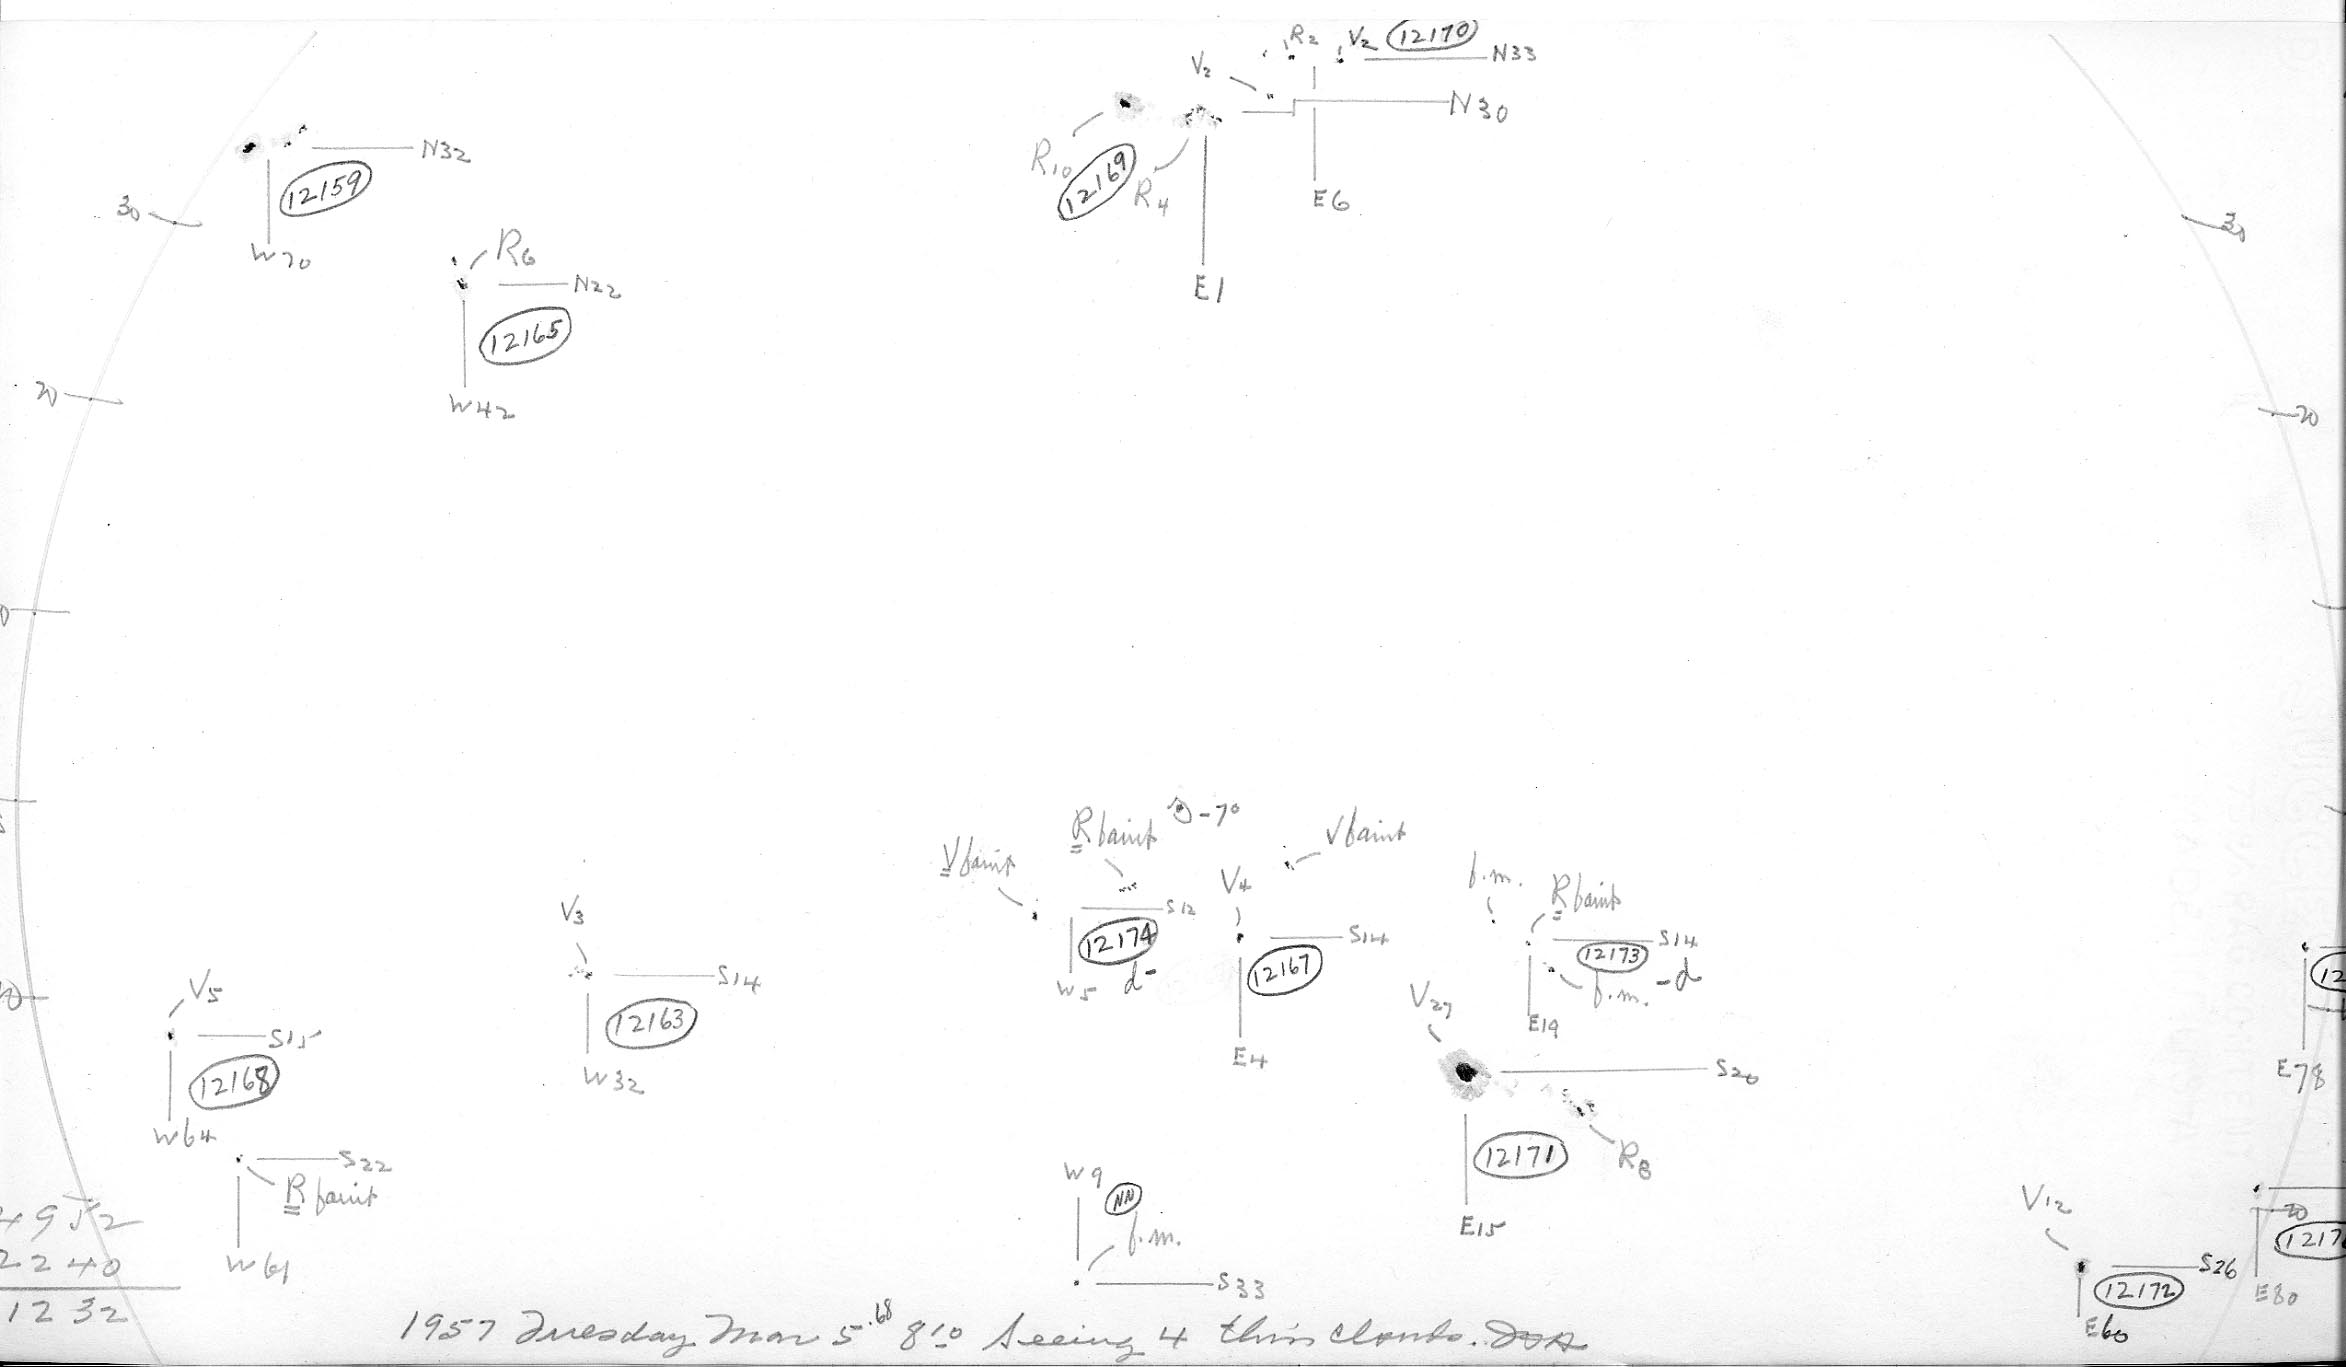 R2
V2
12170
N33
V2
N30
R10
12169
R4
E6
E1
N32
12159
W70
30
30
R6
N22
12165
W42
20
20
R faint
-7°
V faint
V faint
V3
S14
12163
W32
S12
12174
W5
d-
V4
S14
12167
E4
f.m.
R faint
S14
12173
f.m.
-d
E19
V5
S15
12168
W64
V27
S20
12171
R8
E15
E78
S22
R faint
W61
W9
NN
f.m.
S33
V12
S26
12172
E60
20
1217
E80
4952
2240
1232
1957 Tuesday Mar 5.68 8 10 Seeing 4 thin clouds.